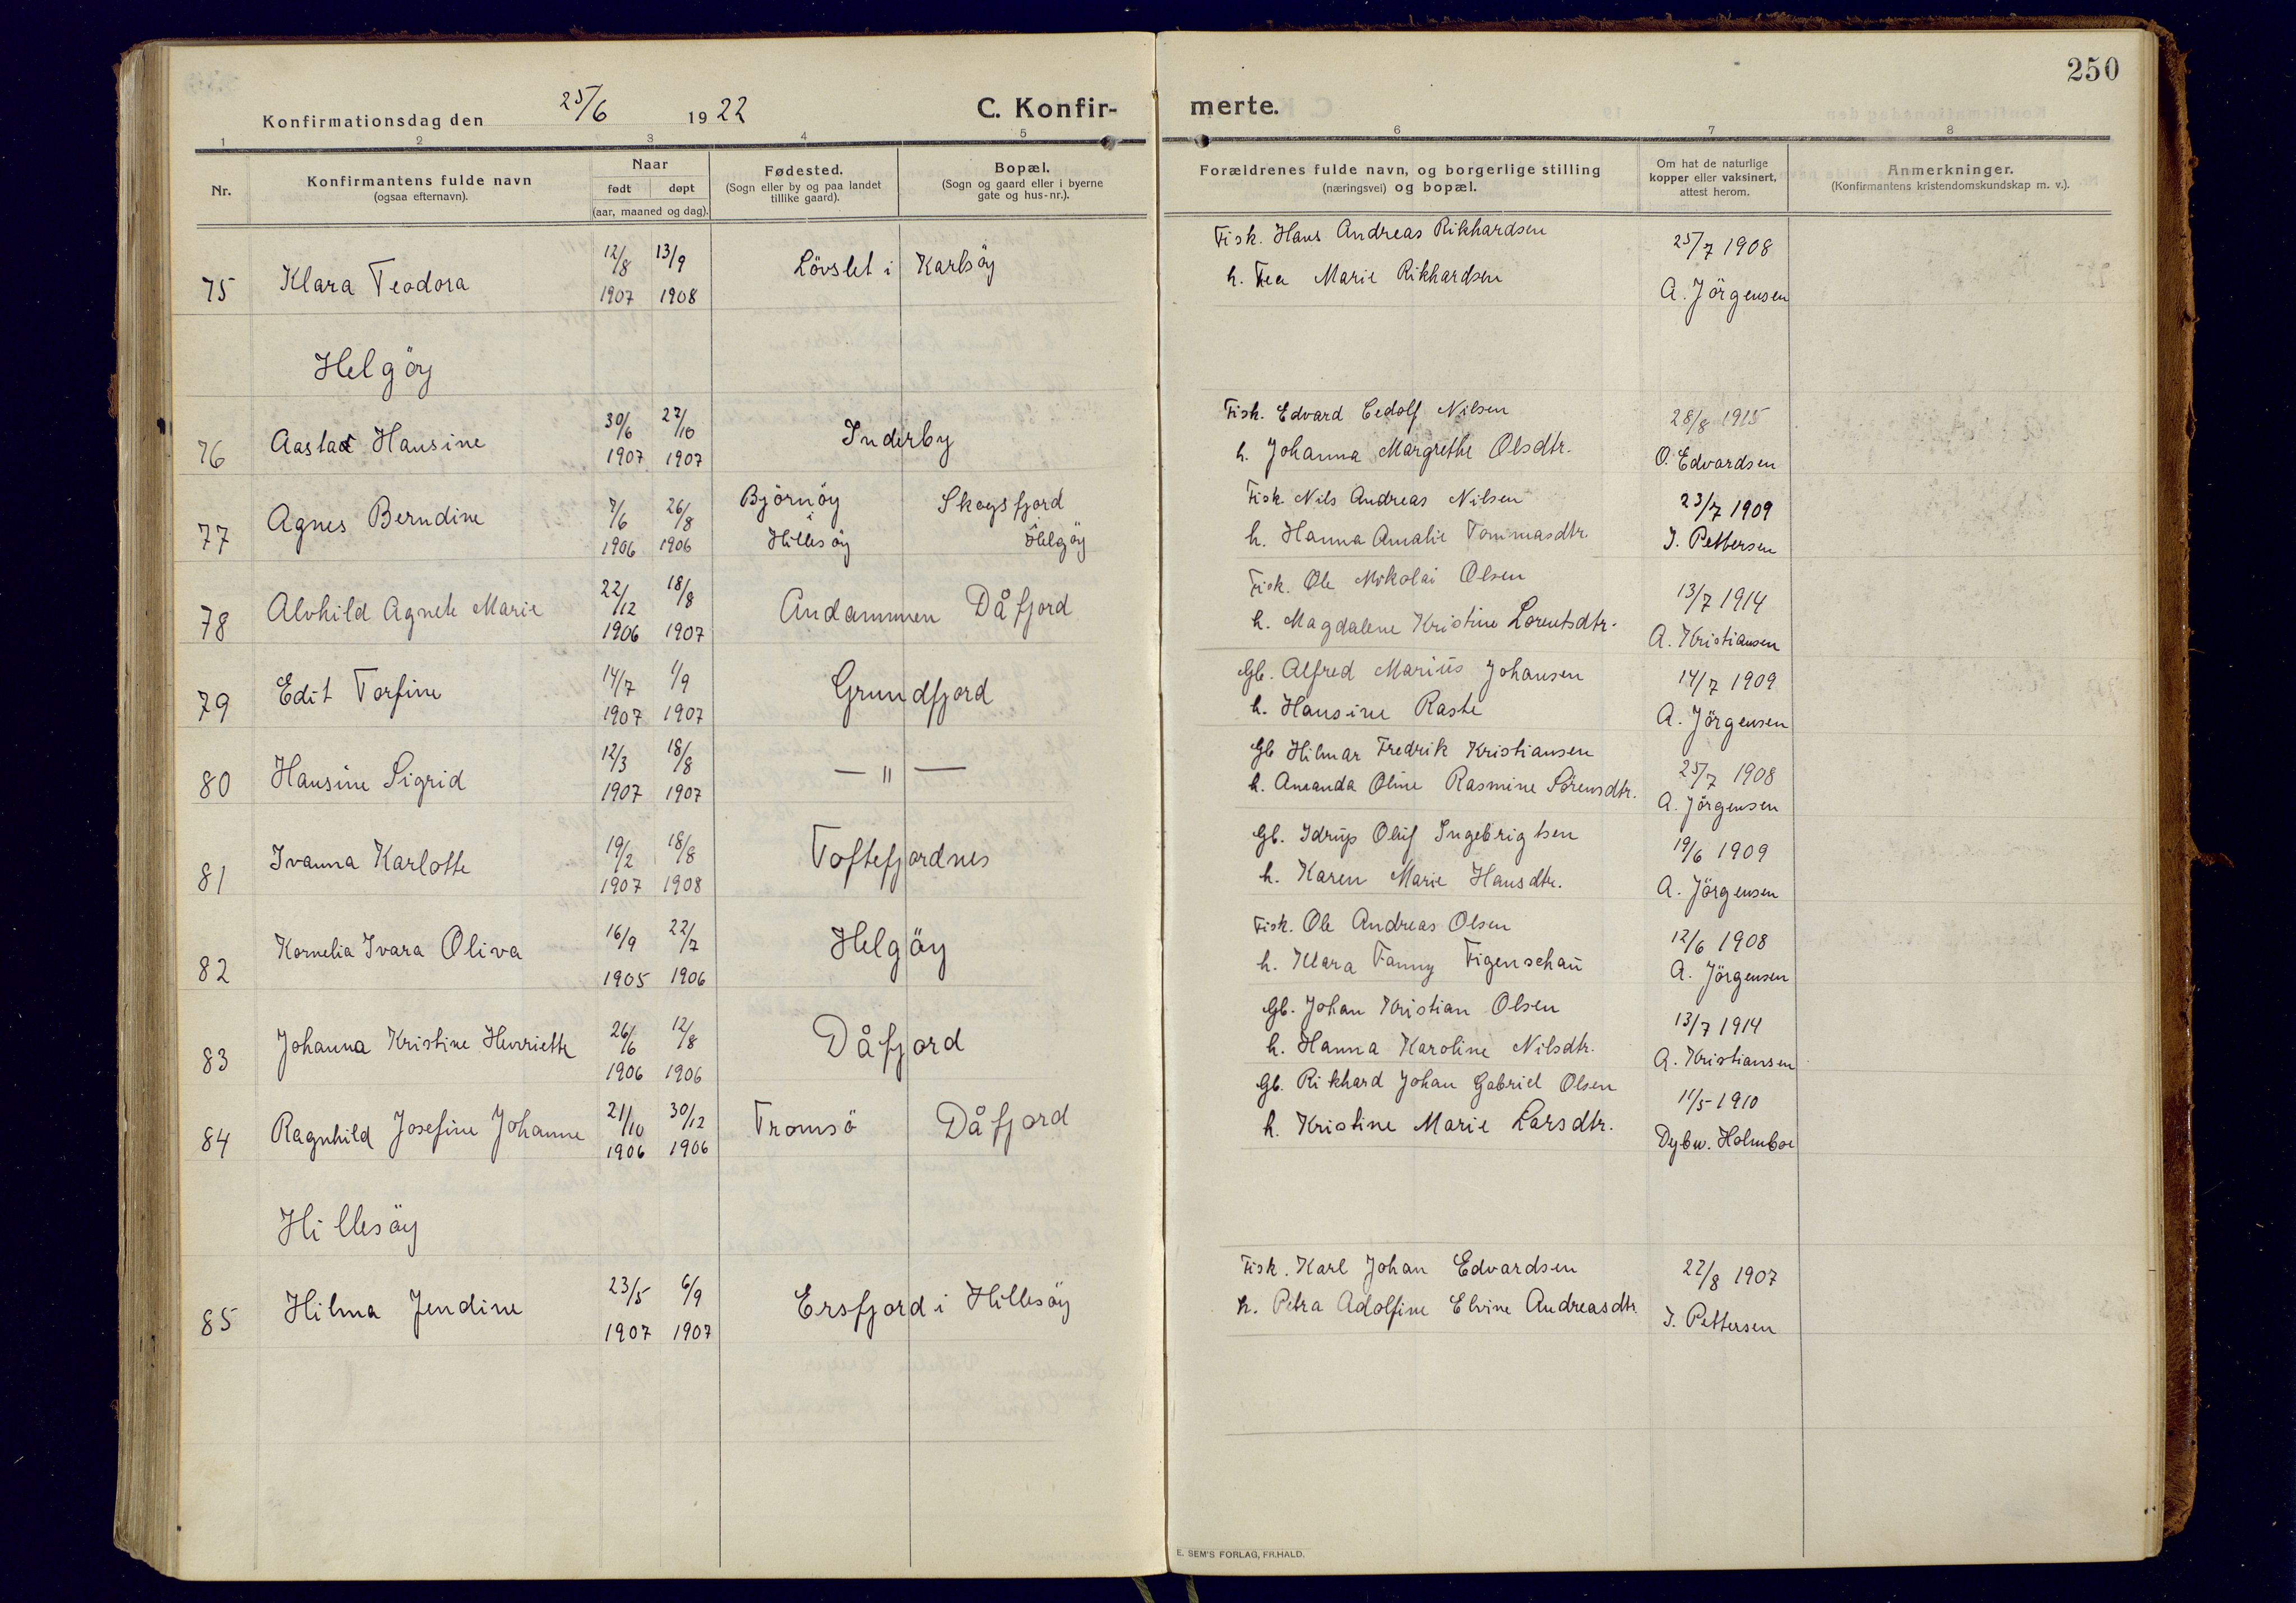 250
Konfirmationsdag den 25/6 1922 C. Konfir-
merte.
1 2 3 4 5 6 7 8
Nr.
Konfirmantens fulde navn
(ogsaa efternavn).
Naar
født døpt
(aar, maaned og dag).
Fødested.
(Sogn eller by og paa landet
tillike gaard).
Bopæl.
(Sogn og gaard eller i byerne
gate og hus-nr.).
Forældrenes fulde navn, og borgerlige stilling
(næringsvei) og bopæl.
Om hat de naturlige
kopper eller vaksinert,
attest herom.
Anmerkninger.
(Konfirmantens kristendomskundskap m. v.).
75 Klara Teodora 12/8 1907 13/9 1908 Lövslet i Karlsöy
Fisk. Hans Andreas Rikhardsen 25/7 1908
h. Tea Marie Rikhardsen A. Jörgensen
Helgöy
76 Aasta Hansine 30/6 1907 27/10 1907 Inderby
Fisk. Edvard Cedolf Nilsen 28/8 1915
h. Johanna Margrethe Olsdtr. O. Edvardsen
77 Agnes Berndine 7/6 1906 26/8 1906 Björnöy i Hillesöy Skogsfjord i Helgöy
Fisk. Nils Andreas Nilsen 23/7 1909
h. Hanna Amalie Tommasdtr. J. Pettersen
78 Alvhild Agnete Marie 22/12 1906 18/8 1907 Andammen Dåfjord
Fisk. Ole Nikolai Olsen 13/7 1914
h. Magdalene Kristine Lorentsdtr. A. Kristiansen
79 Edit Torfine 14/7 1907 1/9 1907 Grundfjord
Gb. Alfred Marius Johansen 14/7 1909
h. Hansine Raste A. Jörgensen
80 Hansine Sigrid 12/3 1907 18/8 1907 — " —
Gb Hilmar Fredrik Kristiansen 25/7 1908
h. Amanda Oline Rasmine Sörensdtr. A. Jörgensen
81 Ivanna Karlotte 19/2 1907 18/8 1908 Toftefjordnes
Gb. Idrup Oluf Ingebrigtsen 19/6 1909
h. Karen Marie Hansdtr. A. Jörgensen
82 Kornelia Ivara Oliva 16/9 1905 22/7 1906 Helgöy
Fisk. Ole Andreas Olsen 12/6 1908
h. Klara Fanny Figenschau A. Jörgensen
83 Johanna Kristine Henriette 26/6 1906 12/8 1906 Dåfjord
Gb. Johan Kristian Olsen 13/7 1914
h. Hanna Karoline Nilsdtr. A. Kristiansen
84 Ragnhild Josefine Johanne 21/10 1906 30/12 1906 Tromsö Dåfjord
Gb. Rikhard Johan Gabriel Olsen 11/5 1910
h. Kristine Marie Larsdtr. Dybw. Holmboe
Hillesöy
85 Hilma Jendine 23/5 1907 6/9 1907 Ersfjord i Hillesöy
Fisk. Karl Johan Edvardsen 22/8 1907
h. Petra Adolfine Elvine Andreasdtr. J. Pettersen
E. SEM'S FORLAG, FR.HALD.